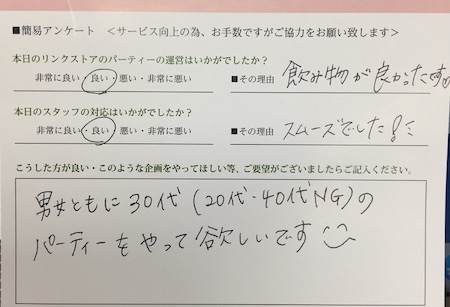 ■簡易アンケート ＜サービス向上の為、お手数ですがご協力をお願い致します＞
本日のリンクストアのパーティーの運営はいかがでしたか？
非常に良い・良い・悪い・非常に悪い ■その理由 飲み物が良かったです
本日のスタッフの対応はいかがでしたか？
非常に良い・良い・悪い・非常に悪い ■その理由 スムーズでした！
こうした方が良い・このような企画をやってほしい等、ご要望がございましたらご記入ください。
男女ともに30代（20代・40代NG）の
パーティーをやって欲しいです